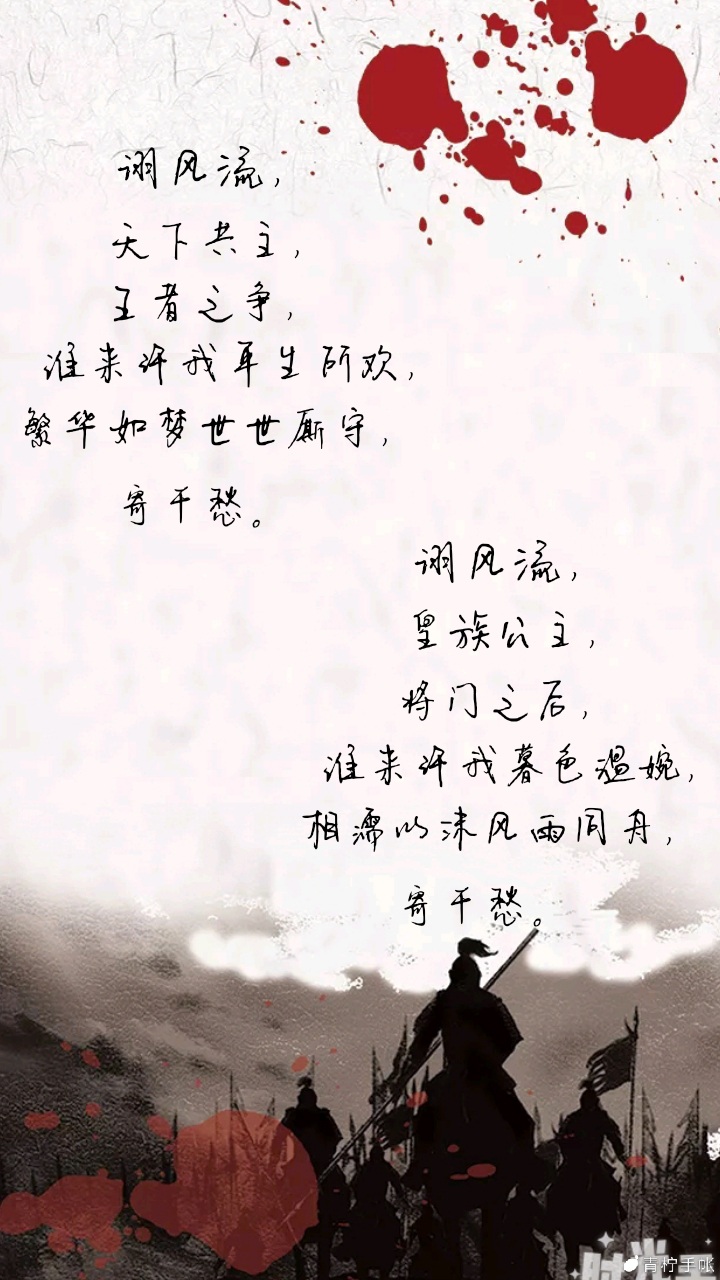 诩风流，
天下共主，
王者之争，
谁来许我平生所欢，
繁华如梦世世厮守，
寄千愁。
诩风流，
皇族公主，
将门之后，
谁来许我暮色温婉，
相濡以沫风雨同舟，
寄千愁。
青柠手帐